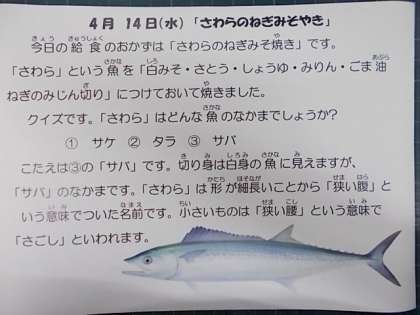 4月 14日(水) 「さわらのねぎみそやき」
今日の給食のおかずは「さわらのねぎみそ焼き」です。
「さわら」という魚を「白みそ・さとう・しょうゆ・みりん・ごま油
ねぎのみじん切り」につけておいて焼きました。
クイズです。「さわら」はどんな魚のなかまでしょうか?
① サケ ② タラ ③ サバ
こたえは③の「サバ」です。切り身は白身の魚に見えますが、
「サバ」のなかまです。「さわら」は形が細長いことから「狭い腹」と
いう意味でついた名前です。小さいものは「狭い腰」という意味で
「さごし」といわれます。